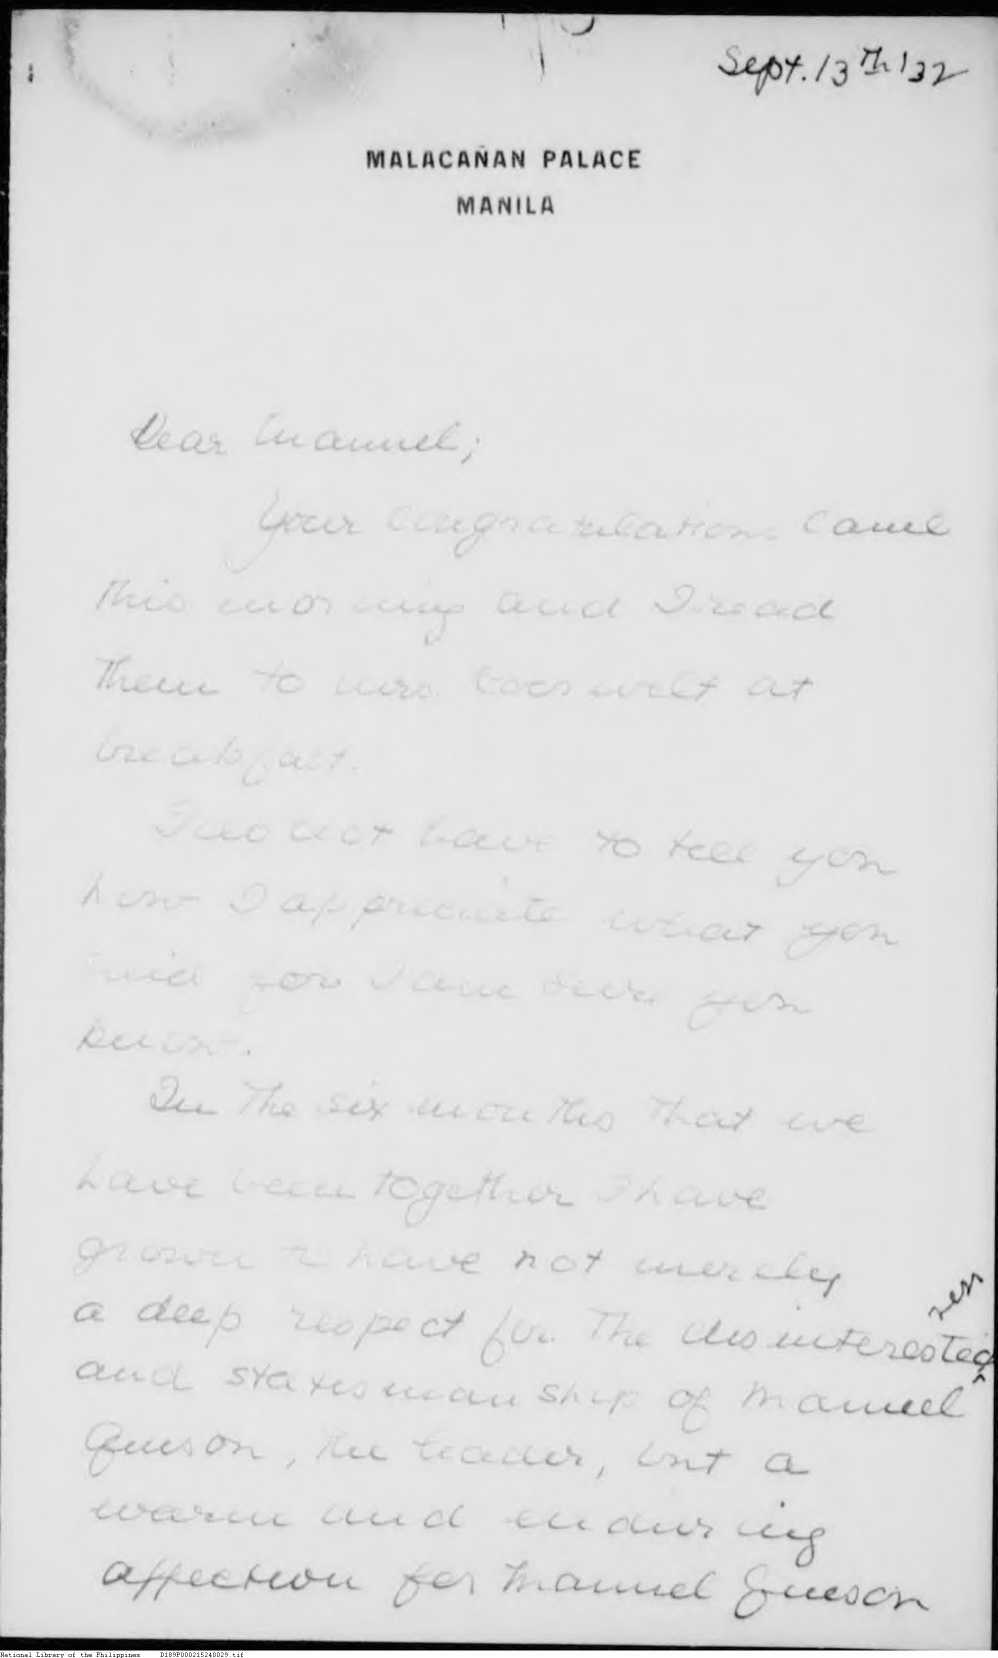 Sept. 13th '32
MALACAÑAN PALACE
MANILA
Dear Manuel;
Your congratulations came
this morning and I read
them to Mrs. Roosevelt at
breakfast.
I do not have to tell you
how I appreciate what you
said for I am sure you
know.
In the six months that we
have been together I have
grown to have not merely
a deep respect for the disinterestedness
and statesmanship of Manuel
Queson, the leader, but a
warm and enduring
affection for Manuel Queson
National Library of the Philippines D189P000215240029.tif